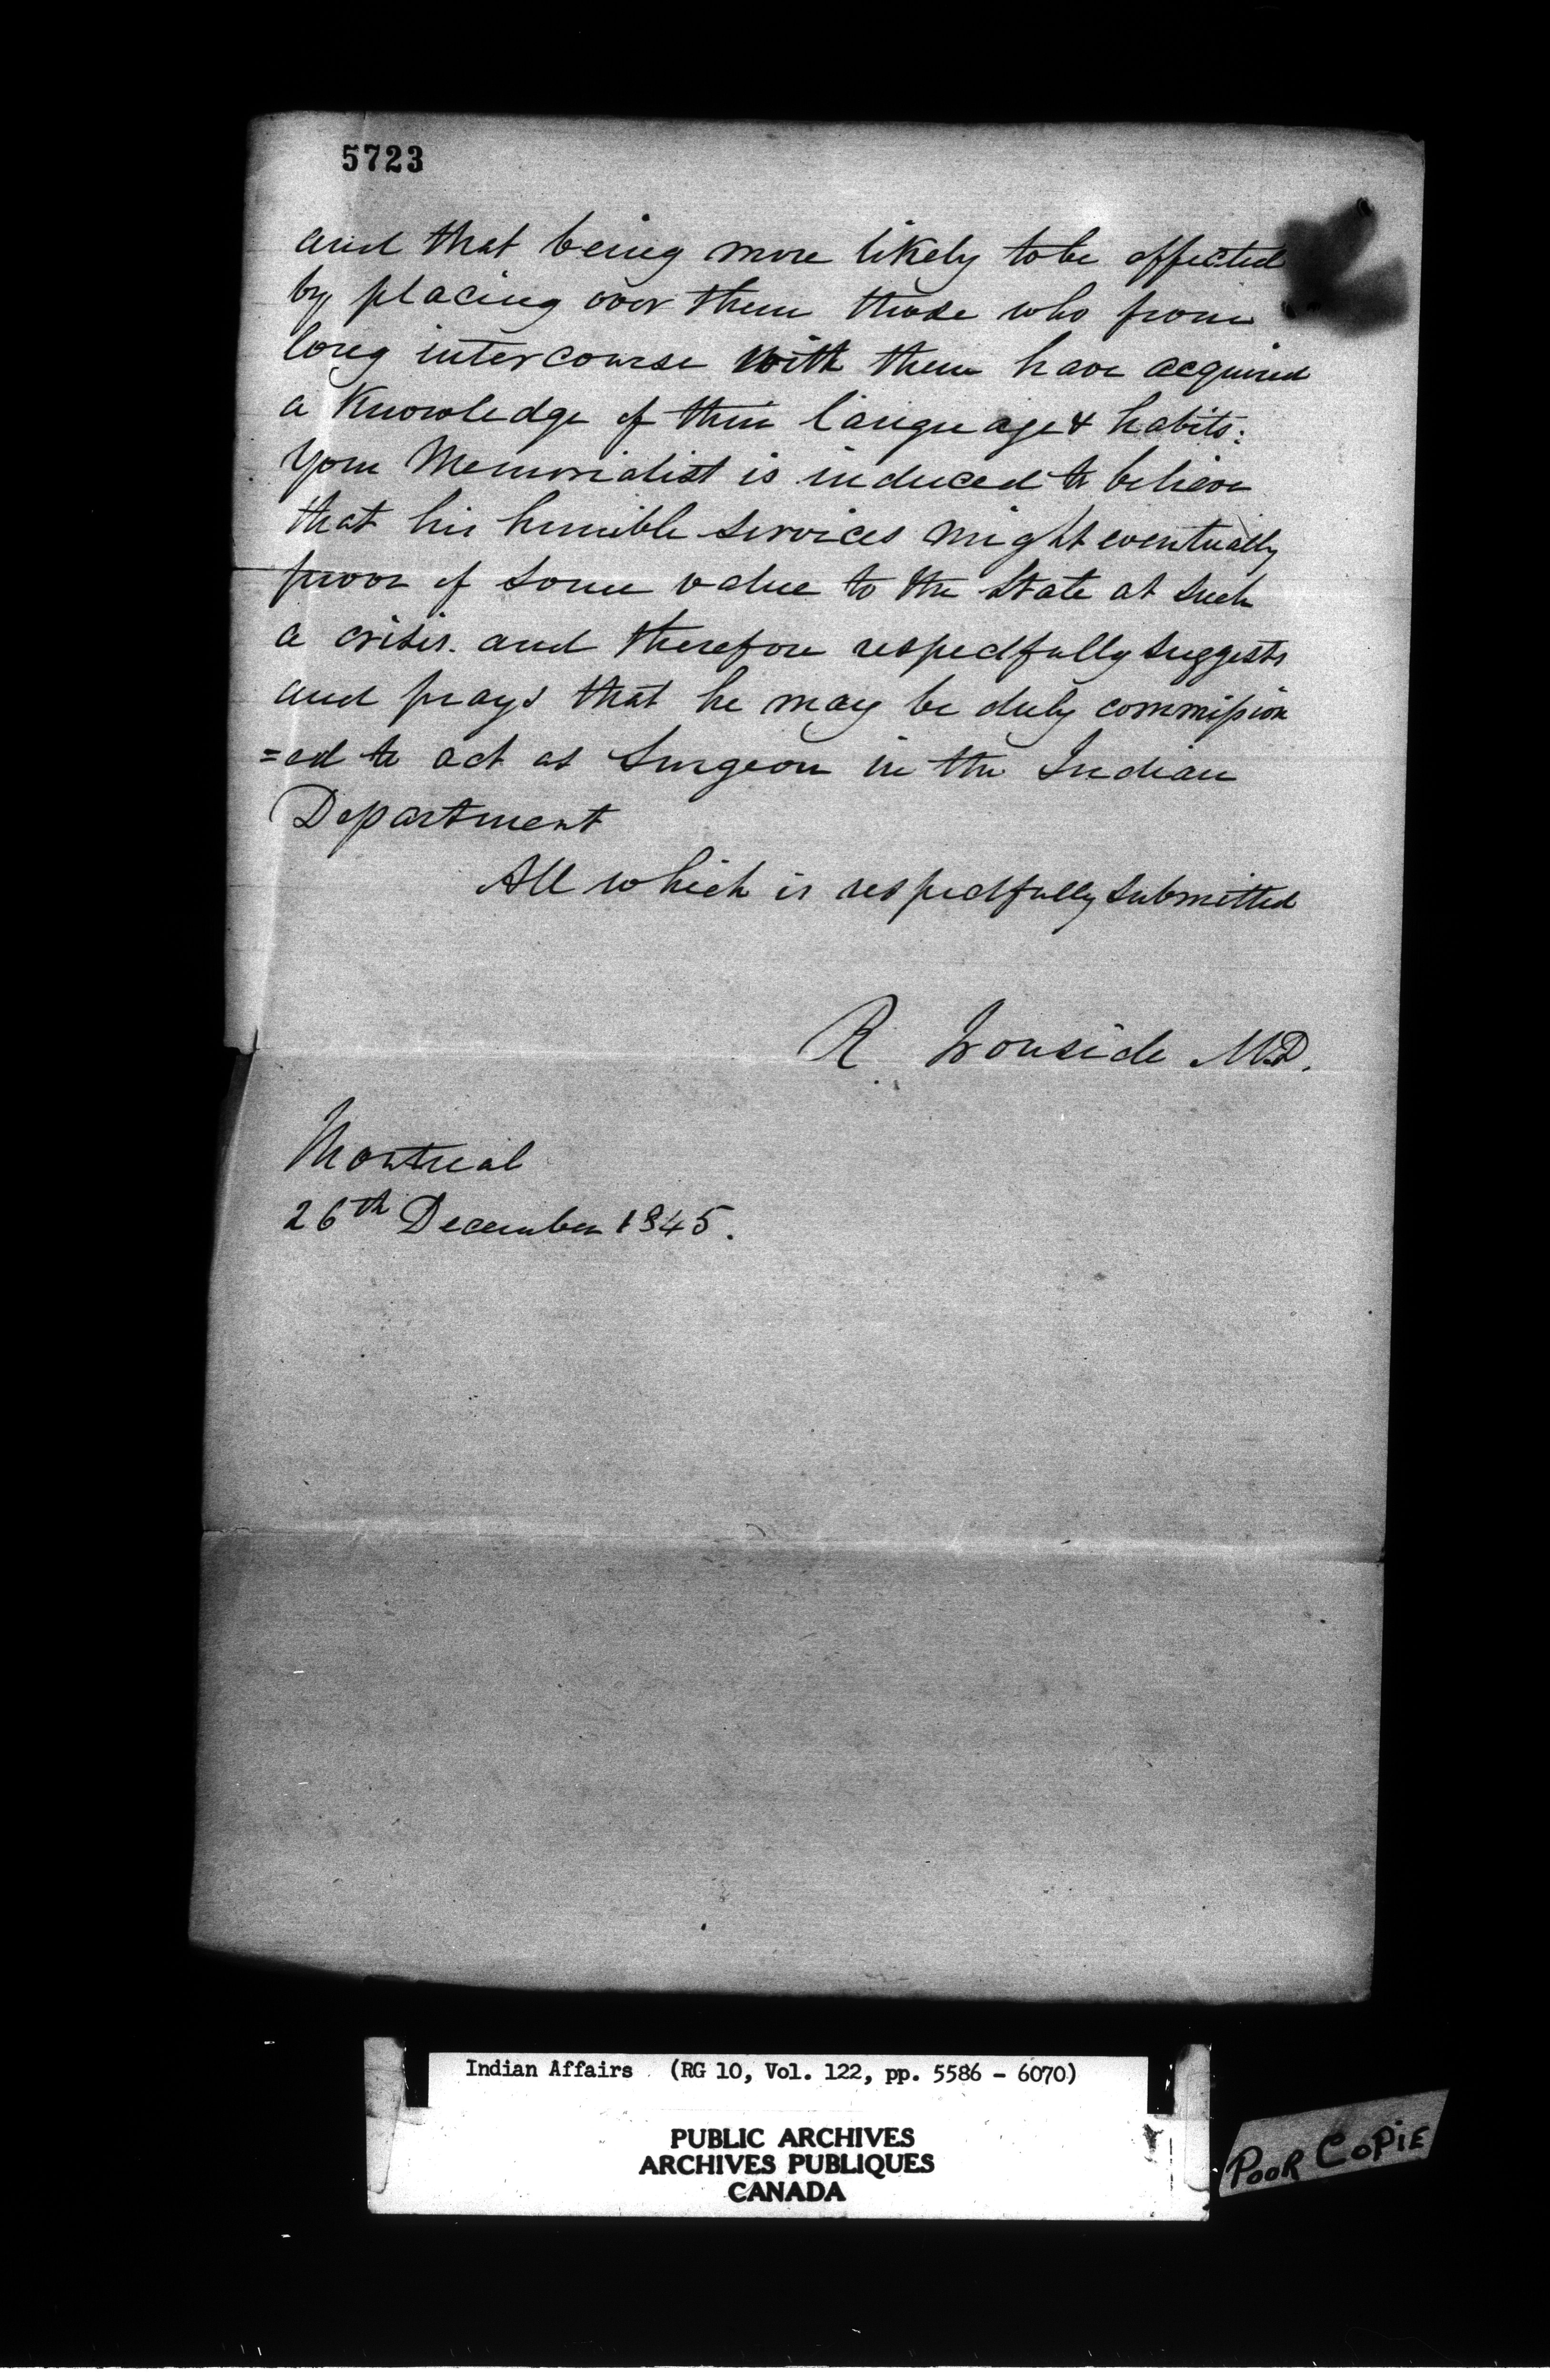 5723
and that being more likely to be effected
by placing over them those who from
long intercourse with them have acquired
a Knowledge of their language & habits:
Your Memorialist is induced to believe
that his humble services might eventually
prove of some value to the State at such
a crisis. and therefore respectfully suggests
and prays that he may be duly commission
=ed to act as Surgeon in the Indian
Department
All which is respectfully submitted
R. Ironside M.D.
Montreal
26th December 1845.
Indian Affairs (RG 10, Vol. 122, pp. 5586 - 6070)
PUBLIC ARCHIVES
ARCHIVES PUBLIQUES
CANADA
POOR COPIE